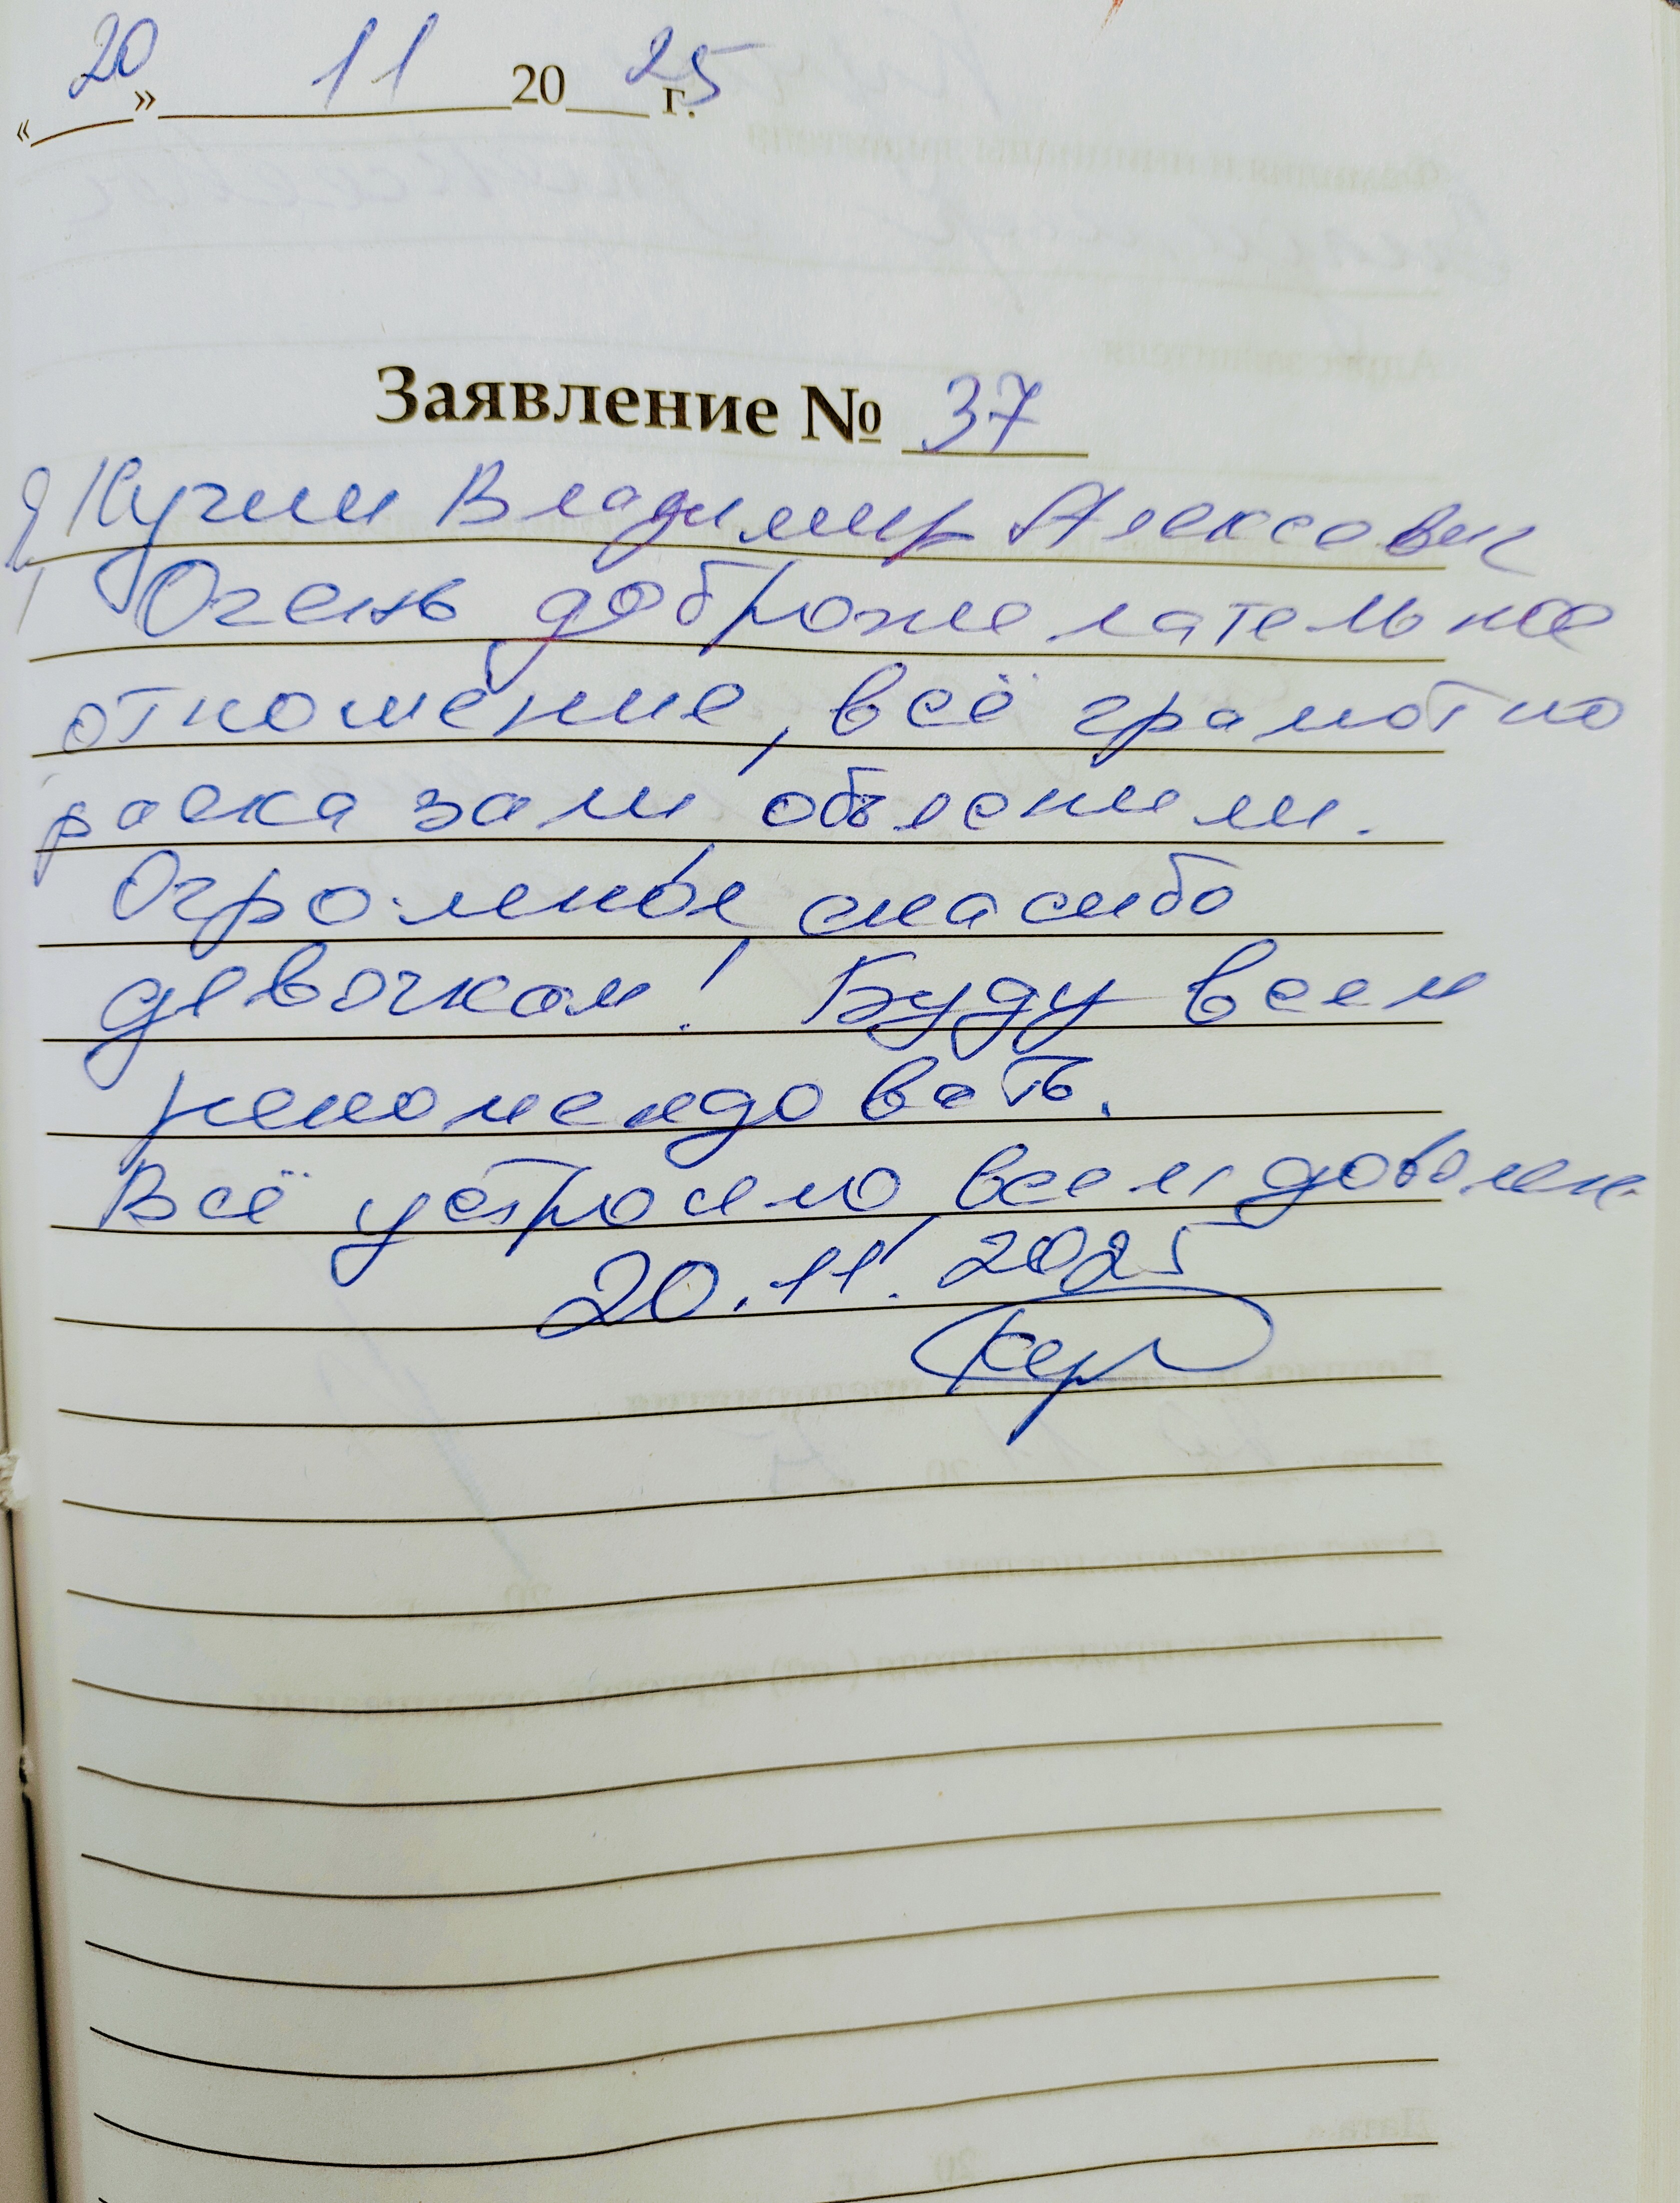 «20» 11 2025 г.
Заявление № 37
Я Кучин Владимир Алексович
Очень доброжелательное
отношение, всё грамотно
рассказали объяснили.
Огромное спасибо
девочкам! Буду всем
рекомендовать.
Всё устроило всем доволен.
20.11.2025